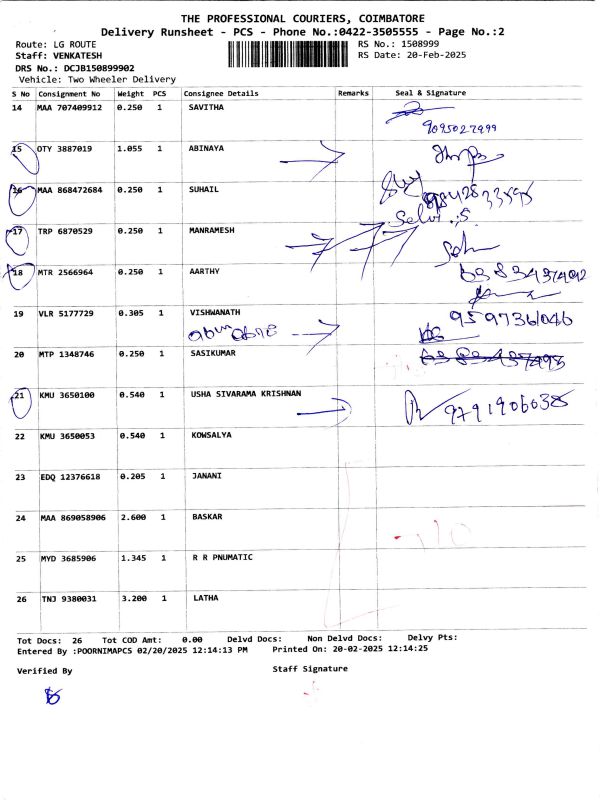 THE PROFESSIONAL COURIERS, COIMBATORE
Delivery Runsheet - PCS - Phone No.:0422-3505555 - Page No.:2
Route: LG ROUTE RS No.: 1508999
Staff: VENKATESH RS Date: 20-Feb-2025
DRS No.: DCJB150899902
Vehicle: Two Wheeler Delivery
S No Consignment No Weight PCS Consignee Details Remarks Seal & Signature
14 MAA 707409912 0.250 1 SAVITHA
9095027999
15 OTY 3887019 1.055 1 ABINAYA
16 MAA 868472684 0.250 1 SUHAIL
9842833595
Selvi .S
17 TRP 6870529 0.250 1 MANRAMESH
18 MTR 2566964 0.250 1 AARTHY
19 VLR 5177729 0.305 1 VISHWANATH
9597361046
20 MTP 1348746 0.250 1 SASIKUMAR
21 KMU 3650100 0.540 1 USHA SIVARAMA KRISHNAN
9791906038
22 KMU 3650053 0.540 1 KOWSALYA
23 EDQ 12376618 0.205 1 JANANI
24 MAA 869058906 2.600 1 BASKAR
25 MYD 3685906 1.345 1 R R PNUMATIC
26 TNJ 9380031 3.200 1 LATHA
Tot Docs: 26 Tot COD Amt: 0.00 Delvd Docs: Non Delvd Docs: Delvy Pts:
Entered By :POORNIMAPCS 02/20/2025 12:14:13 PM Printed On: 20-02-2025 12:14:25
Verified By Staff Signature